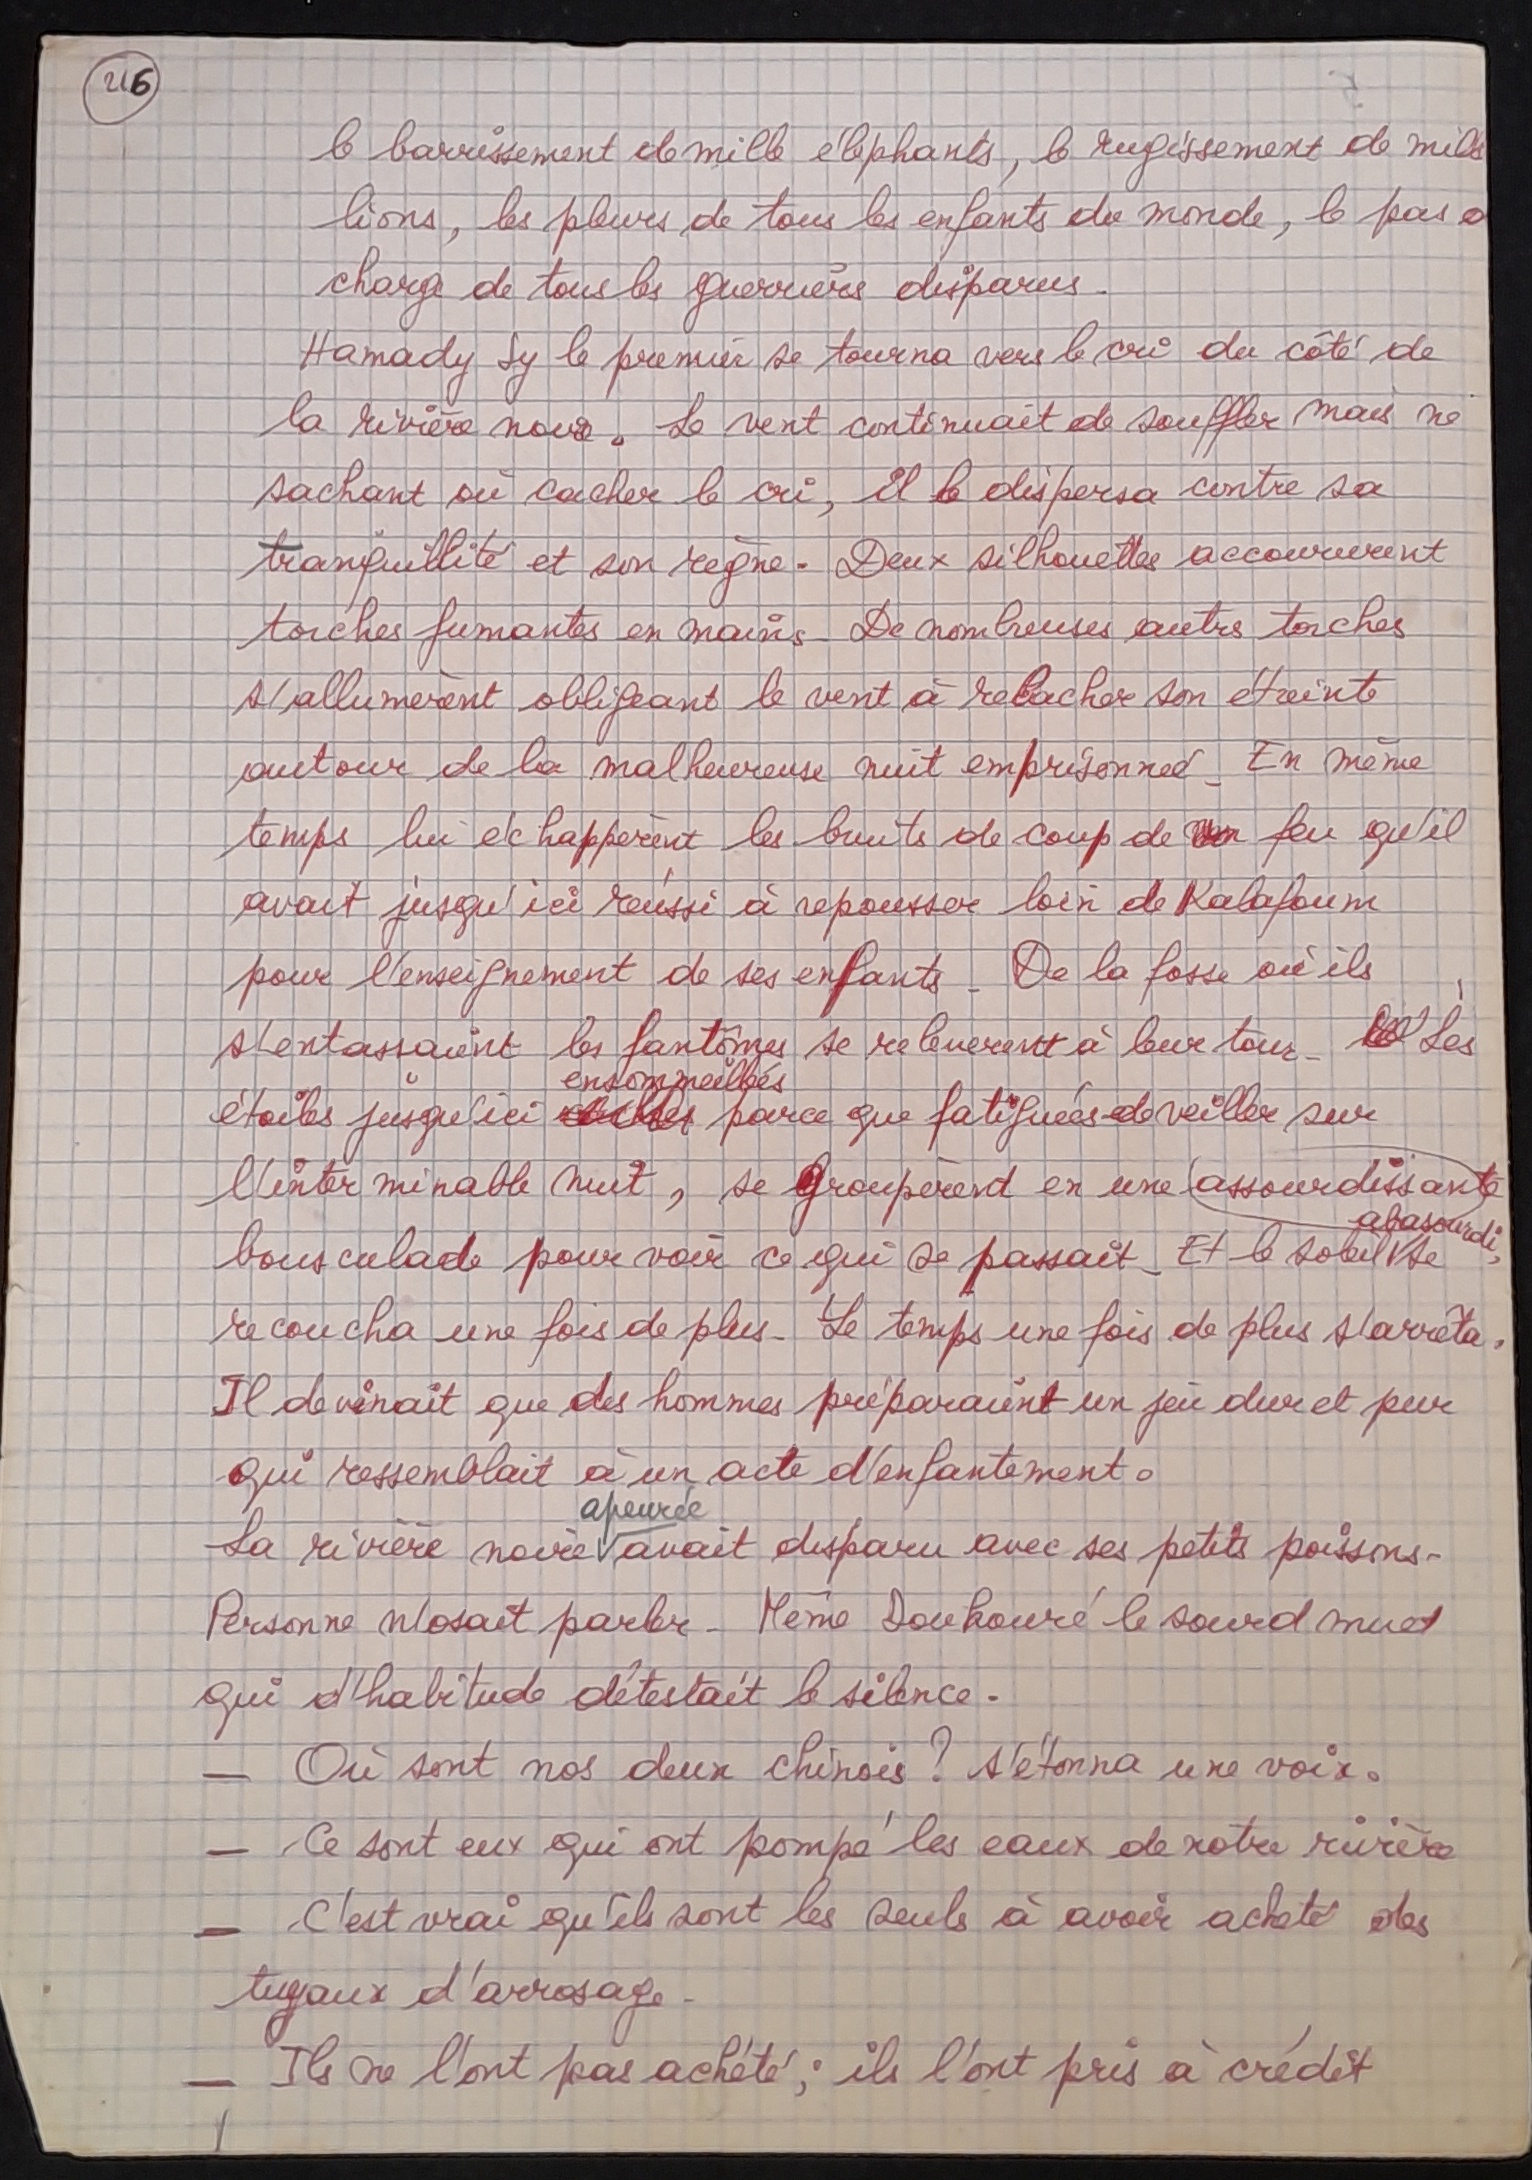 216
le barrissement de mille éléphants, le rugissement de mille
lions, les pleurs de tous les enfants du monde, le pas
charge de tous les guerriers disparus.
Hamady Sy le premier se tourna vers le cri du côté de
la rivière noire. Le vent continuait de souffler mais ne
sachant où cacher le cri, il le dispersa contre sa
tranquillité et son règne. Deux silhouettes accoururent
torches fumantes en mains. De nombreuses autres torches
s'allumèrent obligeant le vent à relacher son étreinte
autour de la malheureuse nuit emprisonnée. En même
temps lui échappèrent les bruits de coup de feu qu'il
avait jusqu'ici réussi à repousser loin de Kalafoum
pour l'enseignement de ses enfants. De la fosse où ils
s'entassaient les fantômes se releverent à leur tour. Les
ensommeillées
étoiles jusqu'ici parce que fatiguées de veiller sur
l'interminable nuit, se groupèrent en une assourdissante
abasourdi,
bousculade pour voir ce qui se passait. Et le soleil se
recoucha une fois de plus. Le temps une fois de plus s'arrêta.
Il devinait que des hommes préparaient un jeu dur et pur
qui ressemblait à un acte d'enfantement.
apeurée
La rivière noire avait disparu avec ses petits poissons.
Personne n'osait parler. Même Douhouré le sourd muet
qui d'habitude détestait le silence.
— Où sont nos deux chinois ? s'étonna une voix.
— Ce sont eux qui ont pompé les eaux de notre rivière
— C'est vrai qu'ils sont les seuls à avoir acheté des
tuyaux d'arrosage.
— Ils ne l'ont pas achété ; ils l'ont pris à crédit